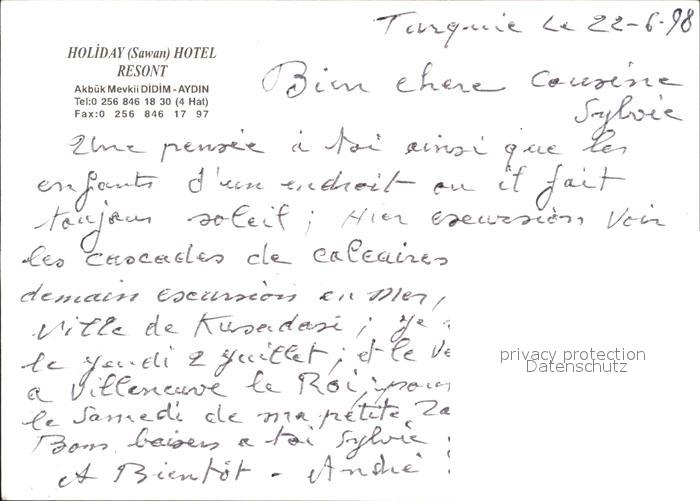 Turquie Le 22-6-98
HOLİDAY (Sawan) HOTEL
RESONT
Akbük Mevkii DİDİM - AYDIN
Tel:0 256 846 18 30 (4 Hat)
Fax:0 256 846 17 97
Bien chere cousine
Sylvie
Une pensée à toi ainsi que les
enfants d'un endroit ou il fait
toujours soleil ; Hier escursion voir
les cascades de calcaires
demain escursion en mer,
ville de Kusadasi ; je
le jeudi 2 juillet ; et le ve
a Villeneuve le Roi, pour
le samedi de ma petite
Bons baisers a toi Sylvie
A Bientôt - André
privacy protection
Datenschutz